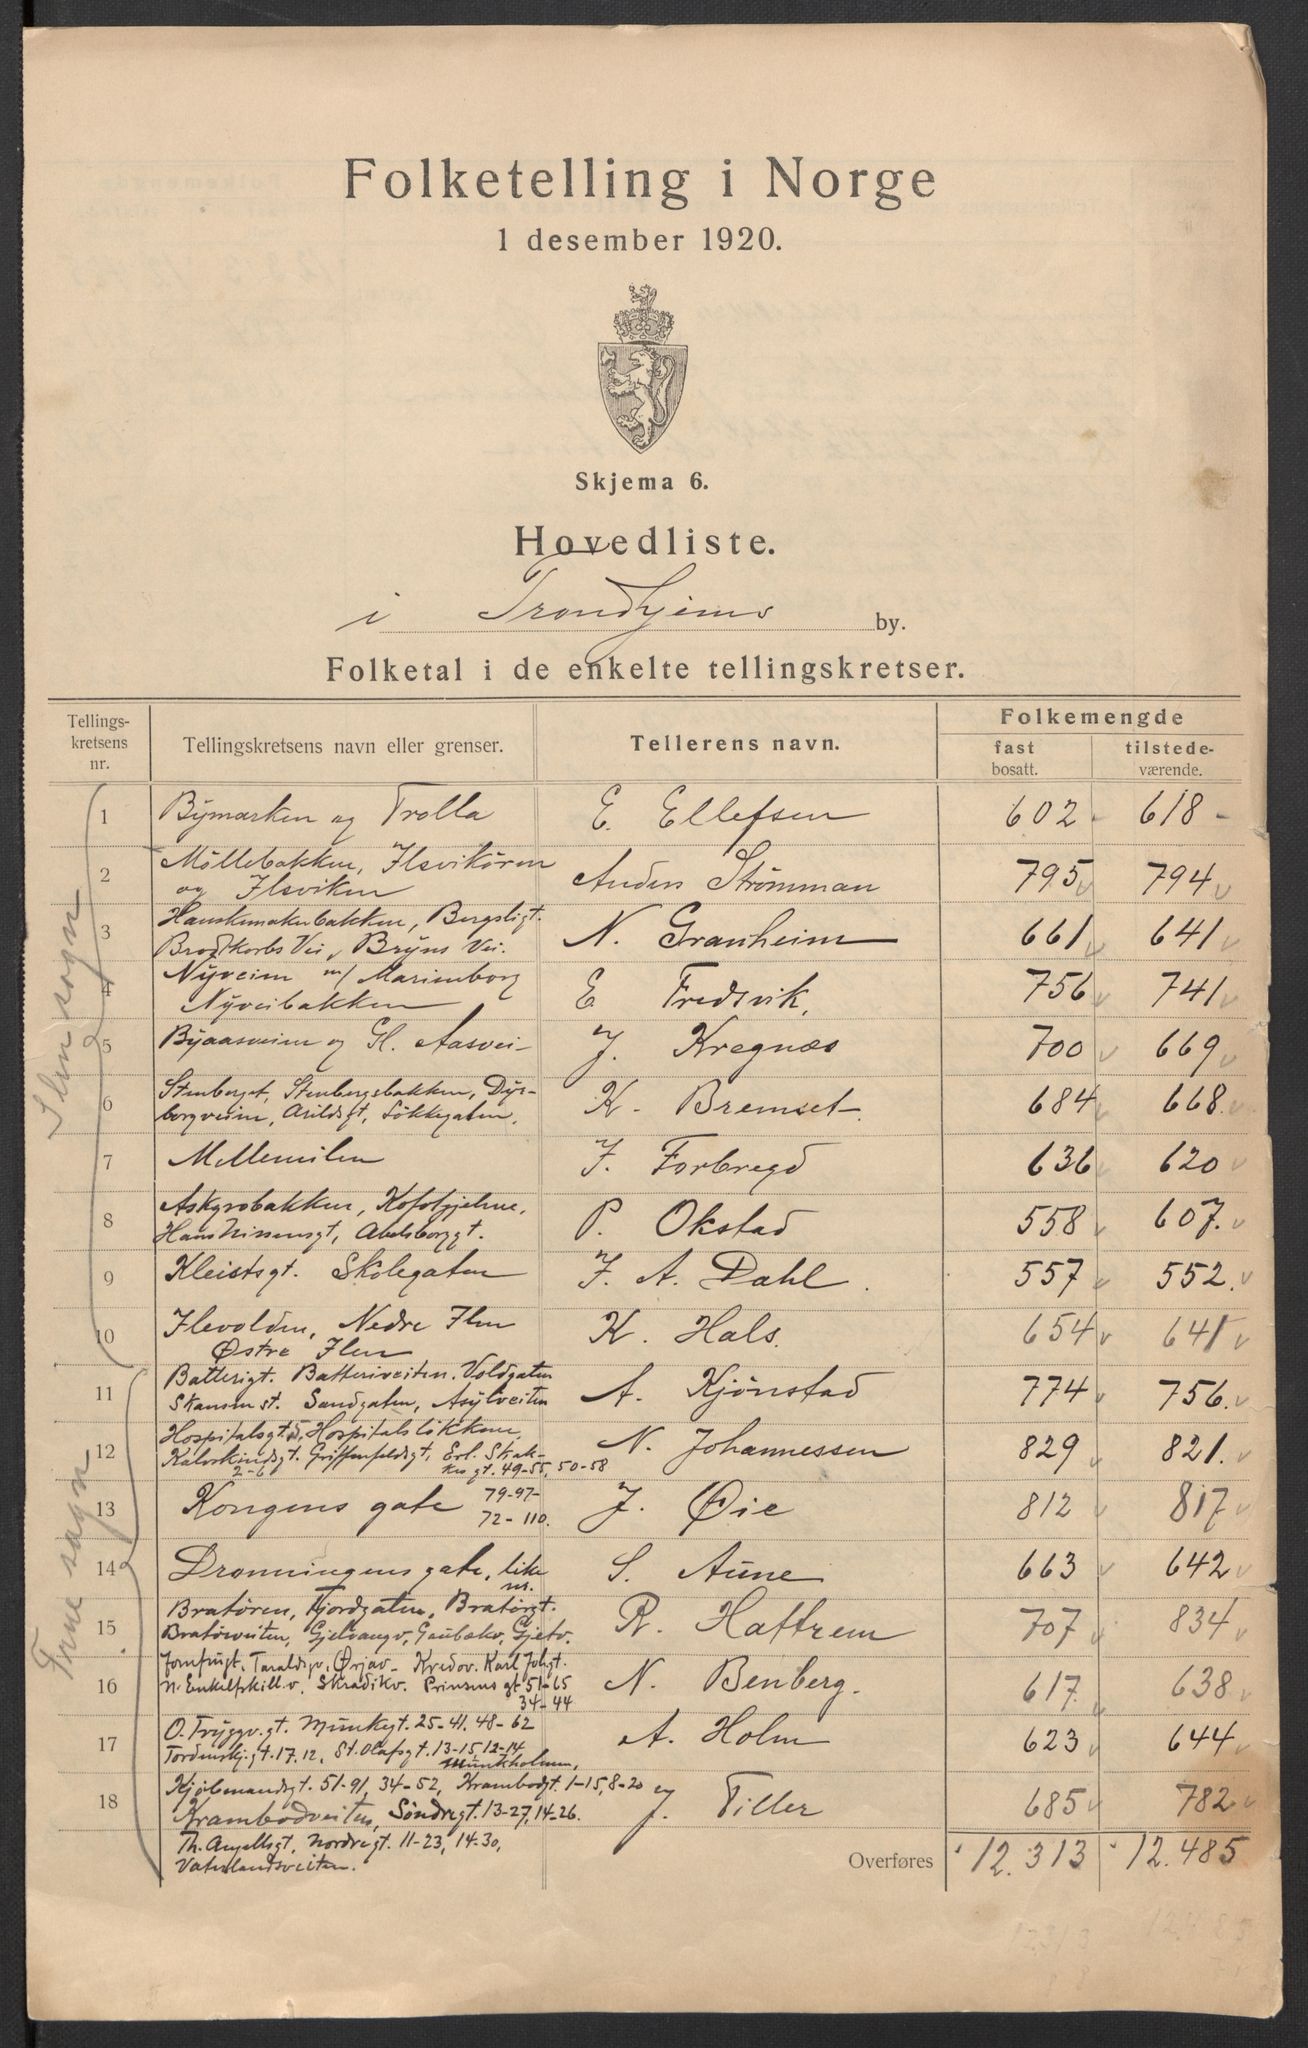 Folketelling i Norge
1 desember 1920.
Skjema 6.
Hovedliste.
i Trondhjems by.
Folketal i de enkelte tellingskretser.
Tellings-
kretsens
nr.
Tellingskretsens navn eller grenser.
Tellerens navn.
Folkemengde
fast
bosatt.
tilstede-
værende.
Ilen sogn
1 Bymarken og Trolla E. Ellefsen 602 618
2 Møllebakken, Ilsvikøren
og Ilsviken Anders Strömman 795 794
3 Hanskemakerbakken, Bergsligt.
Brodtkorbs Vei, Bryns Vei. N. Granheim 661 641
4 Nyveien m/ Marienborg
Nyveibakken E Fredsvik, 756 741
5 Byaasveien og Gl. Aasvei J. Kregnæs 700 669
6 Stenberget, Stenbergsbakken, Dys-
borgveien, Arildsgt, Løkkegaten. K. Bremset 684 668
7 Mellemilen J. Forbregd 636 620
8 Askgrobakken,
Hans Nissensgt, Abelsborggt. P. Okstad 558 607.
9 Kleistsgt. Skolegaten J. A. Dahl. 557 552.
10 Ilevolden, Nedre Ilen
Østre Ilen K. Hals. 654 641
Frue sogn
11 Batterigt. Batteriveiten. Voldgaten
Skansen st. Sandgaten, Asylveiten A. Kjönstad 774 756.
12 Hospitalsgt. Hospitalsløkken,
Kalvskindsgt. Griffenfeldtgt, Erl. Skak-
2-6 kes gt. 49-55, 50-58 N. Johannessen 829 821.
13 Kongens gate 79-97-
72-110. J. Øie 812 817
14 Dronningens gate, like
nr. S. Aune 663 642
15 Bratøren, Fjordgaten, Bratørgt.
Bratørveiten, Gjelvangv, Gaubækv, Gjetv. R. Hattrem 707 834
16 Jomfrugt. Taraldsgv, Ørjav- Kredov. Karl Johgt.
N. Enkelfskill.v. Skradikv. Prinsens gt 51-65
34-44 N. Benberg. 617 638
17 O. Tryggv. gt. Munkegt. 25-41, 48-62
Tordenskj.gt. 17. 12, St. Olafsgt. 13-15, 12-14
Munkholmen, A. Holm 623 644
18 Kjøbmandsgt. 51-91, 34-52, Krambodgt. 1-15, 8-20
Krambodveiten, Søndregt. 13-27, 14-26. J. Tiller 685 782
Th. Angellsgt, Nordregt. 11-23, 14-30,
Vaterlandsveiten.
Overføres 12.313 12.485